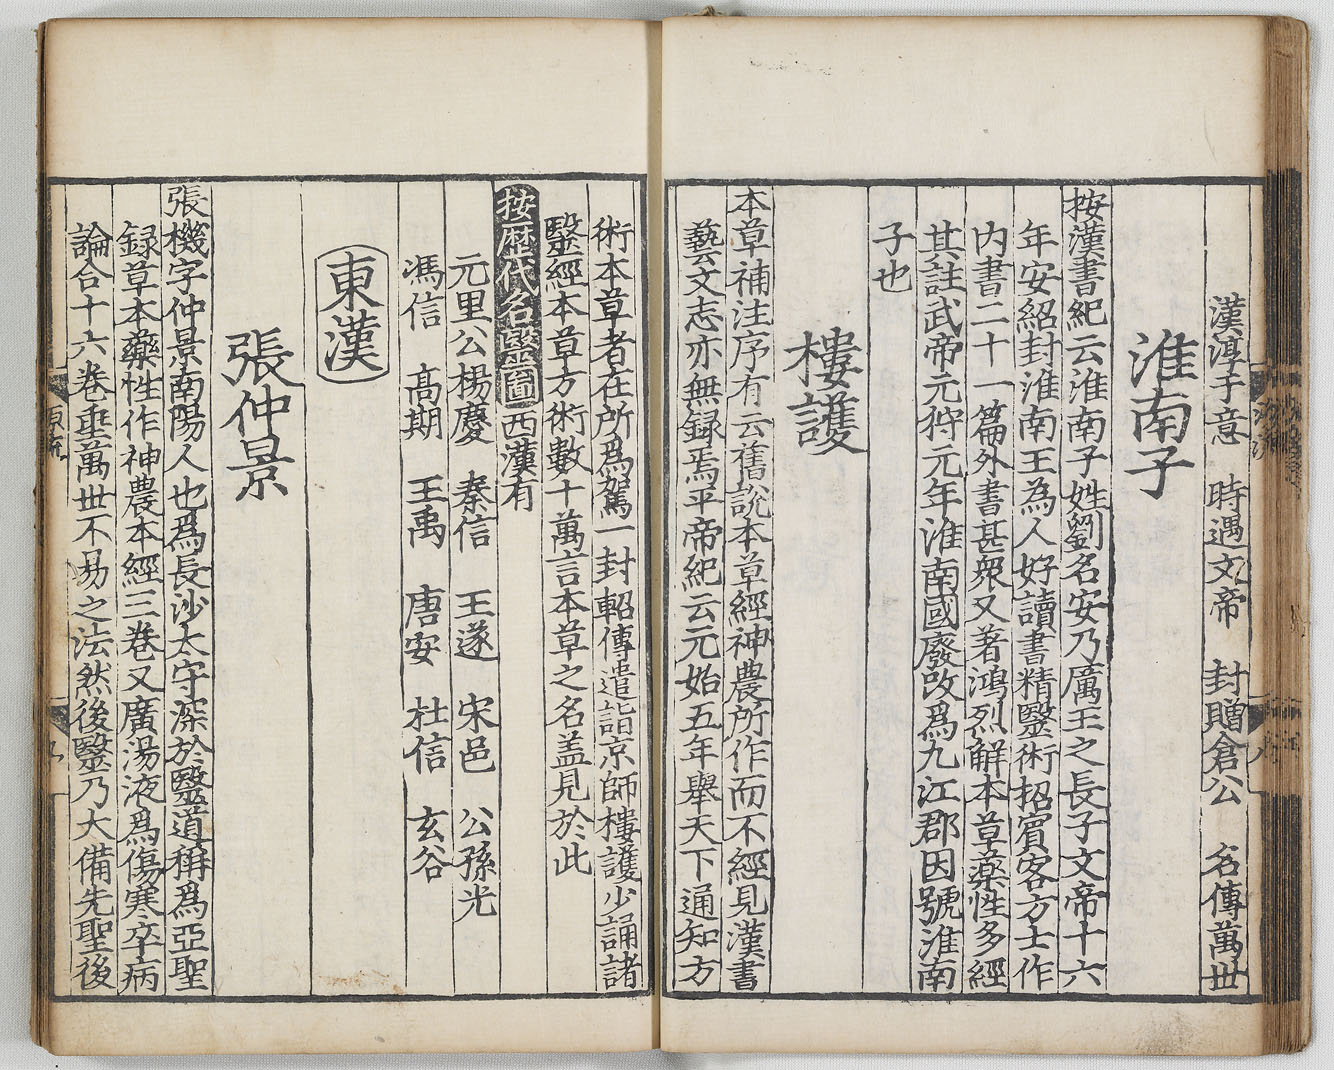 漢淳于意　時遇文帝　封贈倉公　名傳萬世
淮南子
按漢書紀云淮南子姓劉名安乃厲王之長子文帝十六
年安紹封淮南王為人好讀書精毉術招賔客方士作
内書二十一篇外書甚衆又著鴻烈解本草藥性多經
其註武帝元狩元年淮南國廢改爲九江郡因號淮南
子也
樓護
本草補注序有云舊説本草經神農所作而不經見漢書
藝文志亦無録焉平帝紀云元始五年舉天下通知方
術本草者在所爲駕一封軺傳遣詣京師樓護少誦諸
毉經本草方術數十萬言本草之名盖見於此
按歴代名毉圖西漢有
元里公楊慶　秦信　王遂　宋邑　公孫光
馮信　髙期　王禹　唐安　杜信　玄谷
東漢
張仲景
張機字仲景南陽人也爲長沙太守深於毉道稱爲亞聖
録草本藥性作神農本經三巻又廣湯液爲傷寒卒病
論合十六巻垂萬世不易之法然後毉乃大備先聖後